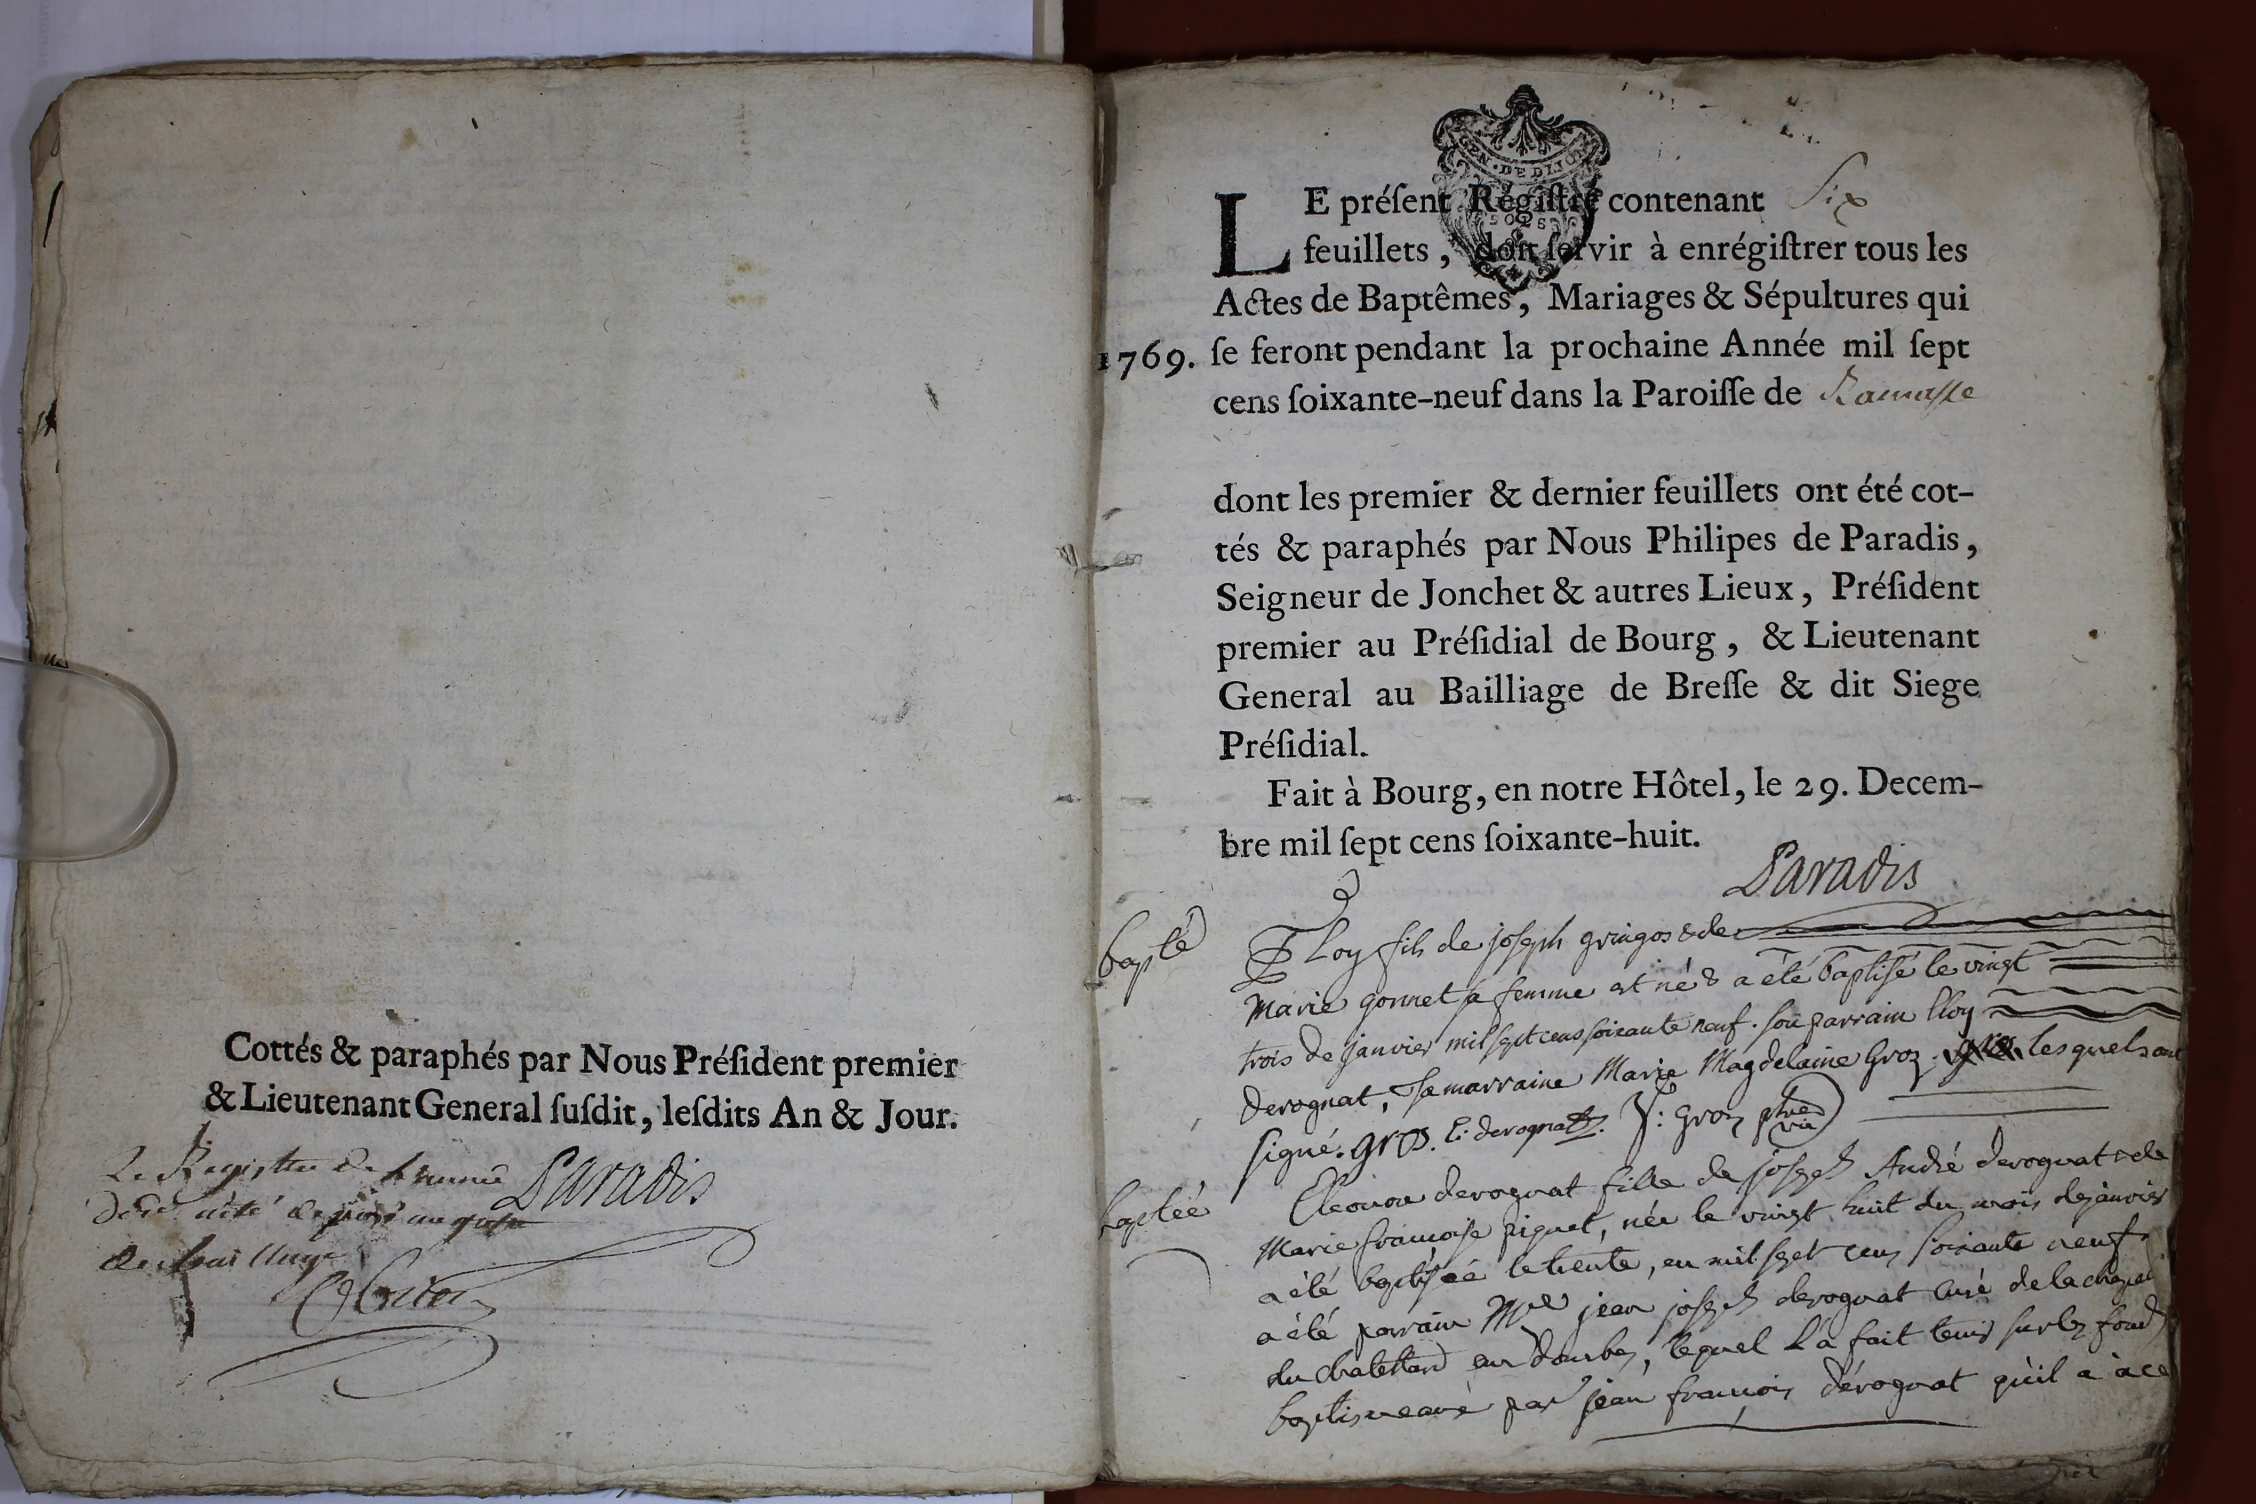 Cottés & paraphés par Nous Préſident premier
& Lieutenant General ſuſdit, leſdits An & Jour.
Le Registre de l'année
de
Paradis
GEN · DE DIJON
SOLS
LE préſent Régiſtre contenant Six
feuillets, doit ſervir à enrégiſtrer tous les
Actes de Baptêmes, Mariages & Sépultures qui
1769. ſe feront pendant la prochaine Année mil ſept
cens ſoixante-neuf dans la Paroiſſe de Ramasse
dont les premier & dernier feuillets ont été cot-
tés & paraphés par Nous Philipes de Paradis,
Seigneur de Jonchet & autres Lieux, Préſident
premier au Préſidial de Bourg, & Lieutenant
General au Bailliage de Breſſe & dit Siege
Préſidial.
Fait à Bourg, en notre Hôtel, le 29. Decem-
bre mil ſept cens ſoixante-huit.
Paradis
bapté
Eloy fils de joseph gringos & de
Marie gonnet sa femme est né & a été baptisé le vingt
trois de janvier mil sept cens soixante neuf. son parrain Eloy
derognat, sa marraine Marie Magdelaine Groz. lesquels ont
signé. gros. E: derognat. J: Groz
baptée
Eleonore derognat fille de joseph André derognat & de
Marie françoise piquet, née le vingt huit du mois de janvier
a été baptisée le trente, en mil sept cens soixante neuf.
a été parrain Mre jean joseph derognat curé de la chapelle
du chatellard en dombes, lequel L'a fait tenir sur les fonds
baptismeaux par jean françois dérognat qu'il a à ce